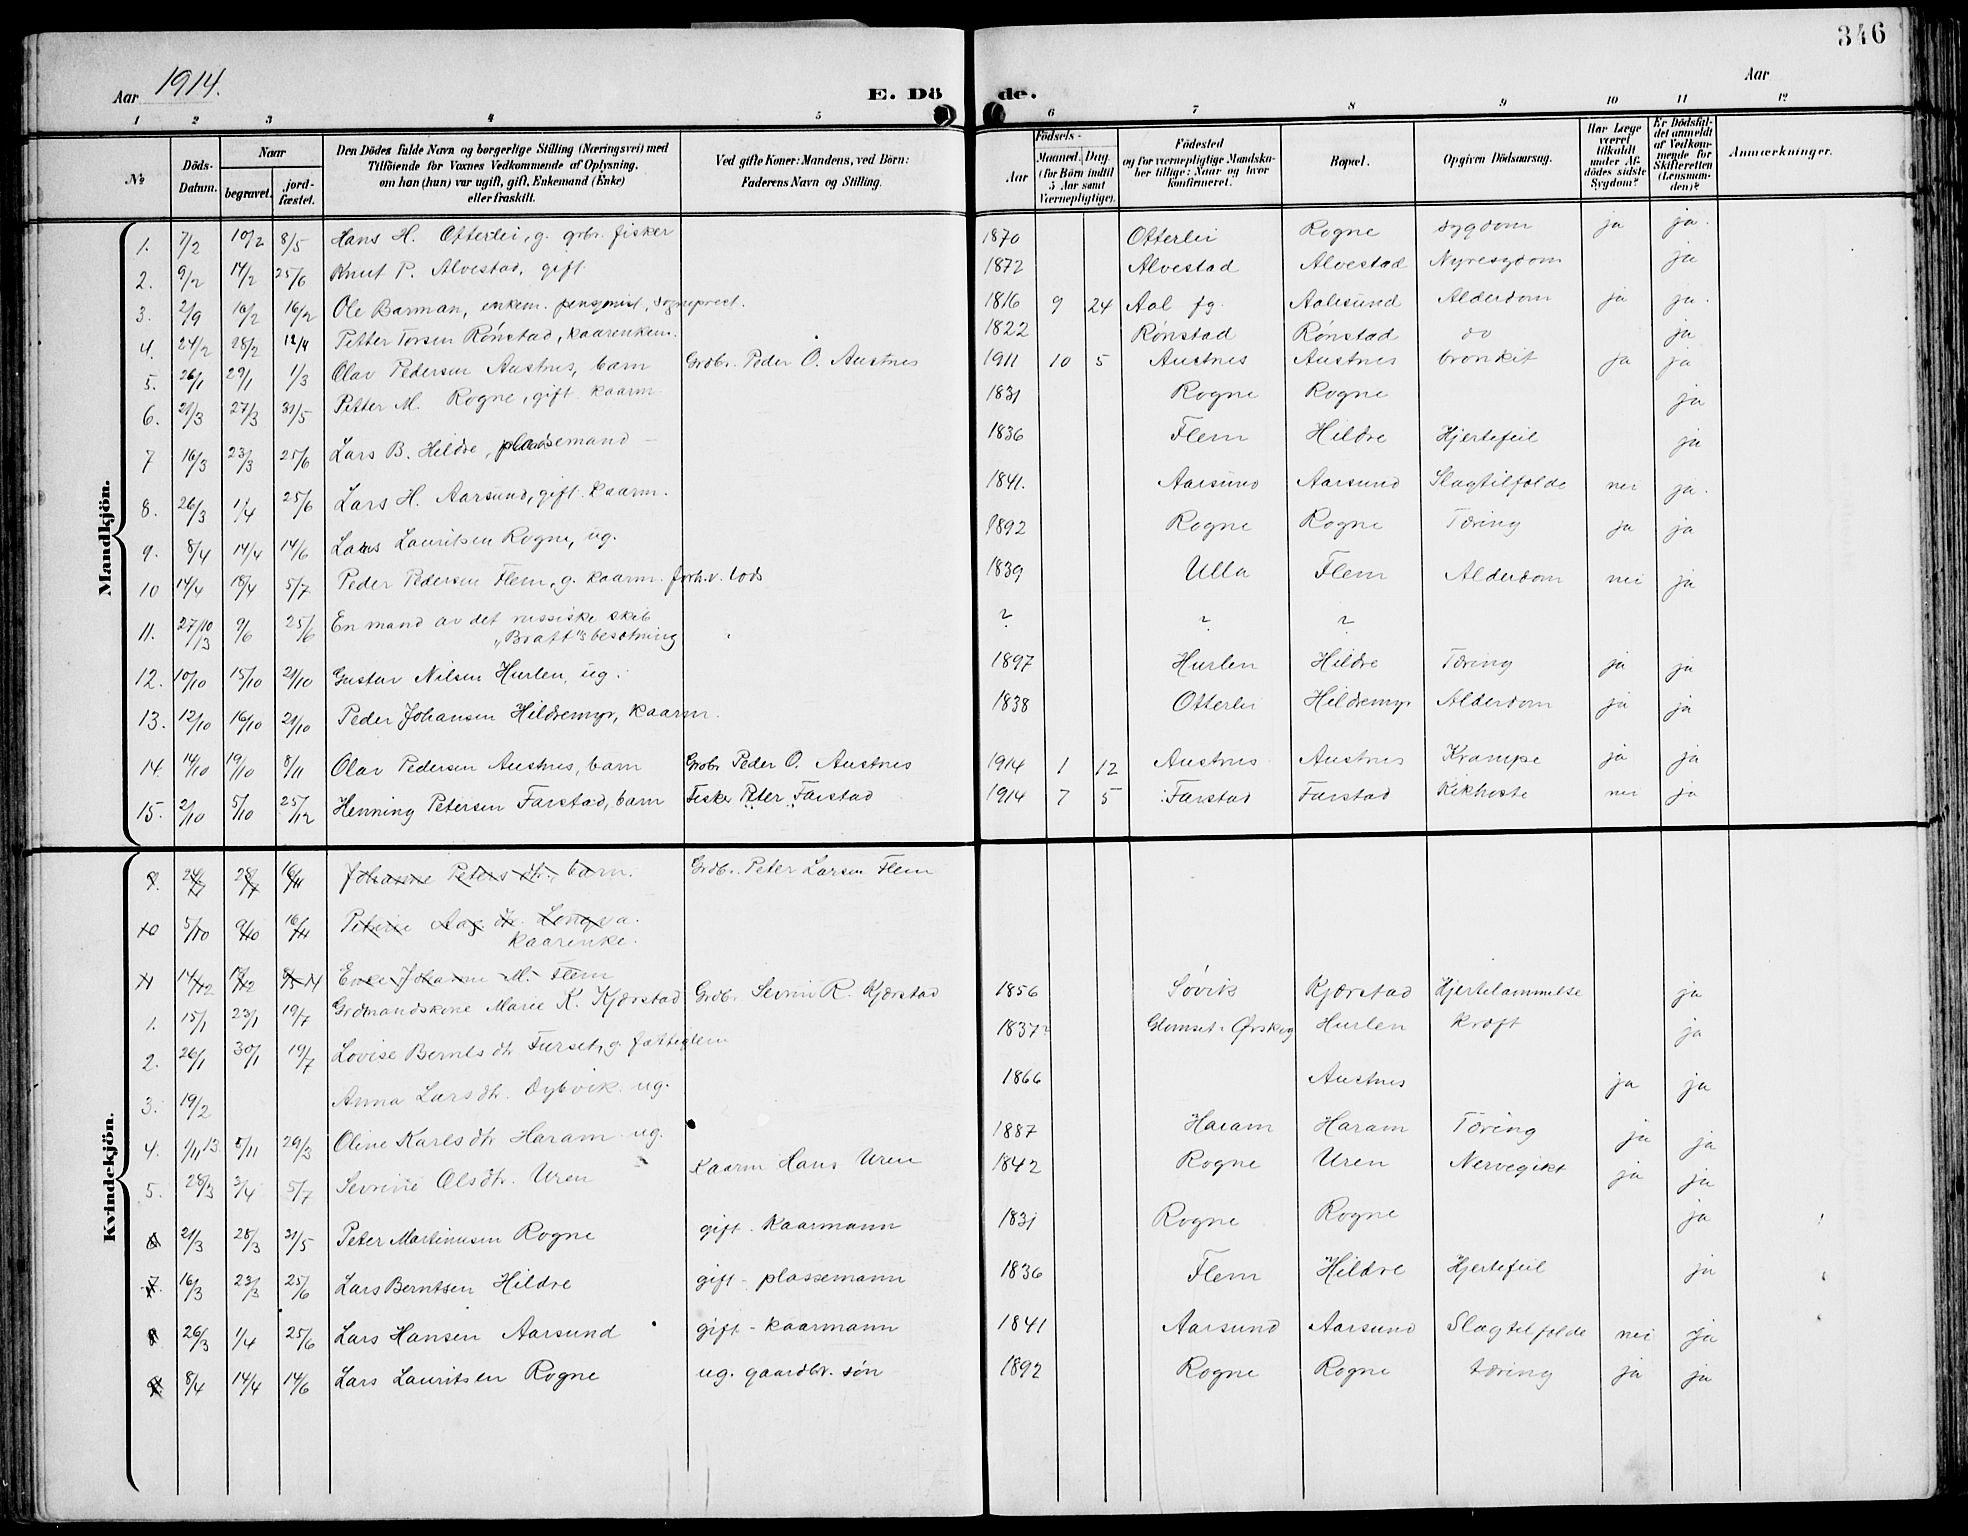 346
Aar 1914.
E. Dö de.
Aar
1 2 3 4 5 6 7 8 9 10 11 12
№
Döds-Datum.
Naar
begravet.
jord-fæstet.
Den Dödes fulde Navn og borgerlige Stilling (Næringsvei) med
Tilföiende for Voxnes Vedkommende af Oplysning.
om han (hun) var ugift, gift, Enkemand (Enke)
eller fraskilt.
Ved gifte Koner: Mandens, ved Börn:
Faderens Navn og Stilling.
Aar
Födsels-
Maaned. Dag.
(for Börn indtil
5 Aar samt
Værnepligtige).
Födested
og for værnepligtige Mandska-
ber tillige: Naar og hvor
konfirmeret.
Bopæl.
Opgiven Dödsaarsag.
Har Læge
været
tilkaldt
under Af-
dödes sidste
Sygdom?
Er Dödsfal-
det anmeldt
af Vedkom-
mende for
Skifteretten
(Lensman-
den)?
Anmærkninger.
Mandkjön.
1. 7/2 10/2 8/5 Hans H. Otterlei, g. grbr. fisker 1870 Otterlei Rogne sygdom ja ja.
2. 9/2 14/2 25/6 Knut P. Alvestad, gift 1872 Alvestad Alvestad Nyresygdom ja
3. 2/9 16/2 16/2 Ole Barman, enkem. pensjonist, sogneprest. 1816 9 24 Aal pg. Aalesund Alderdom ja ja.
4. 24/2 28/2 12/4 Petter Torsen Rønstad, kaarenkem. 1822 Rønstad Rønstad do ja
5. 26/1 29/1 1/3 Olav Pedersen Austnes, barn Grdbr. Peder O. Austnes 1911 10 5 Austnes Austnes bronkit ja ja
6. 21/3 27/3 31/5 Petter M. Rogne, gift kaarm 1831 Rogne Rogne ja
7 16/3 23/3 25/6 Lars B. Hildre, plassemand 1836 Flem Hildre Hjertefeil ja
8. 26/3 1/4 25/6 Lars H. Aarsund, gift kaarm. 1841. Aarsund Aarsund Slagtilfælde nei ja.
9. 8/4 14/4 14/6 Lars Lauritsen Rogne, ug. 1892 Rogne Rogne Tæring ja ja
10 14/4 18/4 5/7 Peder Pedersen Flem, g. kaarm. forh.v. lods 1839 Ulla Flem Alderdom nei ja
11. 27/10/13 9/6 25/6 En mand av det russiske skib
„Bratt"s besætning ? ? ?
12. 10/10 15/10 21/10 Gustav Nilsen Hurlen, ug. 1897 Hurlen Hildre Tæring ja ja
13. 12/10 16/10 21/10 Peder Johansen Hildremyr, kaarm. 1838 Otterlei Hildremyr Alderdom ja ja
14. 14/10 19/10 8/11 Olav Pedersen Austnes, barn Grdbr Peder O. Austnes 1914 1 12 Austnes Austnes Krampe ja ja
15. 2/10 5/10 25/12 Henning Petersen Farstad, barn Fisker Peter Farstad 1914 7 5 Farstad Farstad Kikhoste nei ja
Kvindekjön.
9. 24/7 28/7 16/11 Johanne Peters dtr., barn. Grdbr. Peter Larsen Flem
10 5/10 9/10 16/11 Petrine Aag dtr. Longva.
kaarenke.
11 14/12 19/12 Enke Johanne M. Flem
1. 15/1 23/1 19/7 Grdmandskone Marie K. Kjærstad Grdbr. Sevrin R. Kjærstad 1856 Søvik Kjærstad Hjertelammelse ja
2. 26/1 30/1 19/7 Lovise Bernts dtr Furset, g. fattiglem 1837? Glomset i Ørskog Hurlen kræft ja
3. 19/2 Anna Larsdtr. Dybvik. ug. 1866 Austnes ja ja
4. 1/11 13 5/11 29/3 Oline Karlsdtr Haram ug. 1887 Haram Haram Tæring ja ja
5. 28/3 3/4 5/7 Sevrine Olsdtr. Uren Kaarm Hans Uren 1842 Rogne Uren Nervegikt ja ja
6 21/3 28/3 31/5 Peter Martinusen Rogne gift. kaarmann 1831 Rogne Rogne ja
7. 16/3 23/3 25/6 Lars Berntsen Hildre gift - plassemann 1836 Flem Hildre Hjertefeil ja
8 26/3 1/4 25/6 Lars Hansen Aarsund gift - kaarmann 1841 Aarsund Aarsund Slagtilfælde nei ja
9 8/4 14/4 14/6 Lars Lauritsen Rogne ug. gaardbr. søn 1892 Rogne Rogne tæring ja ja